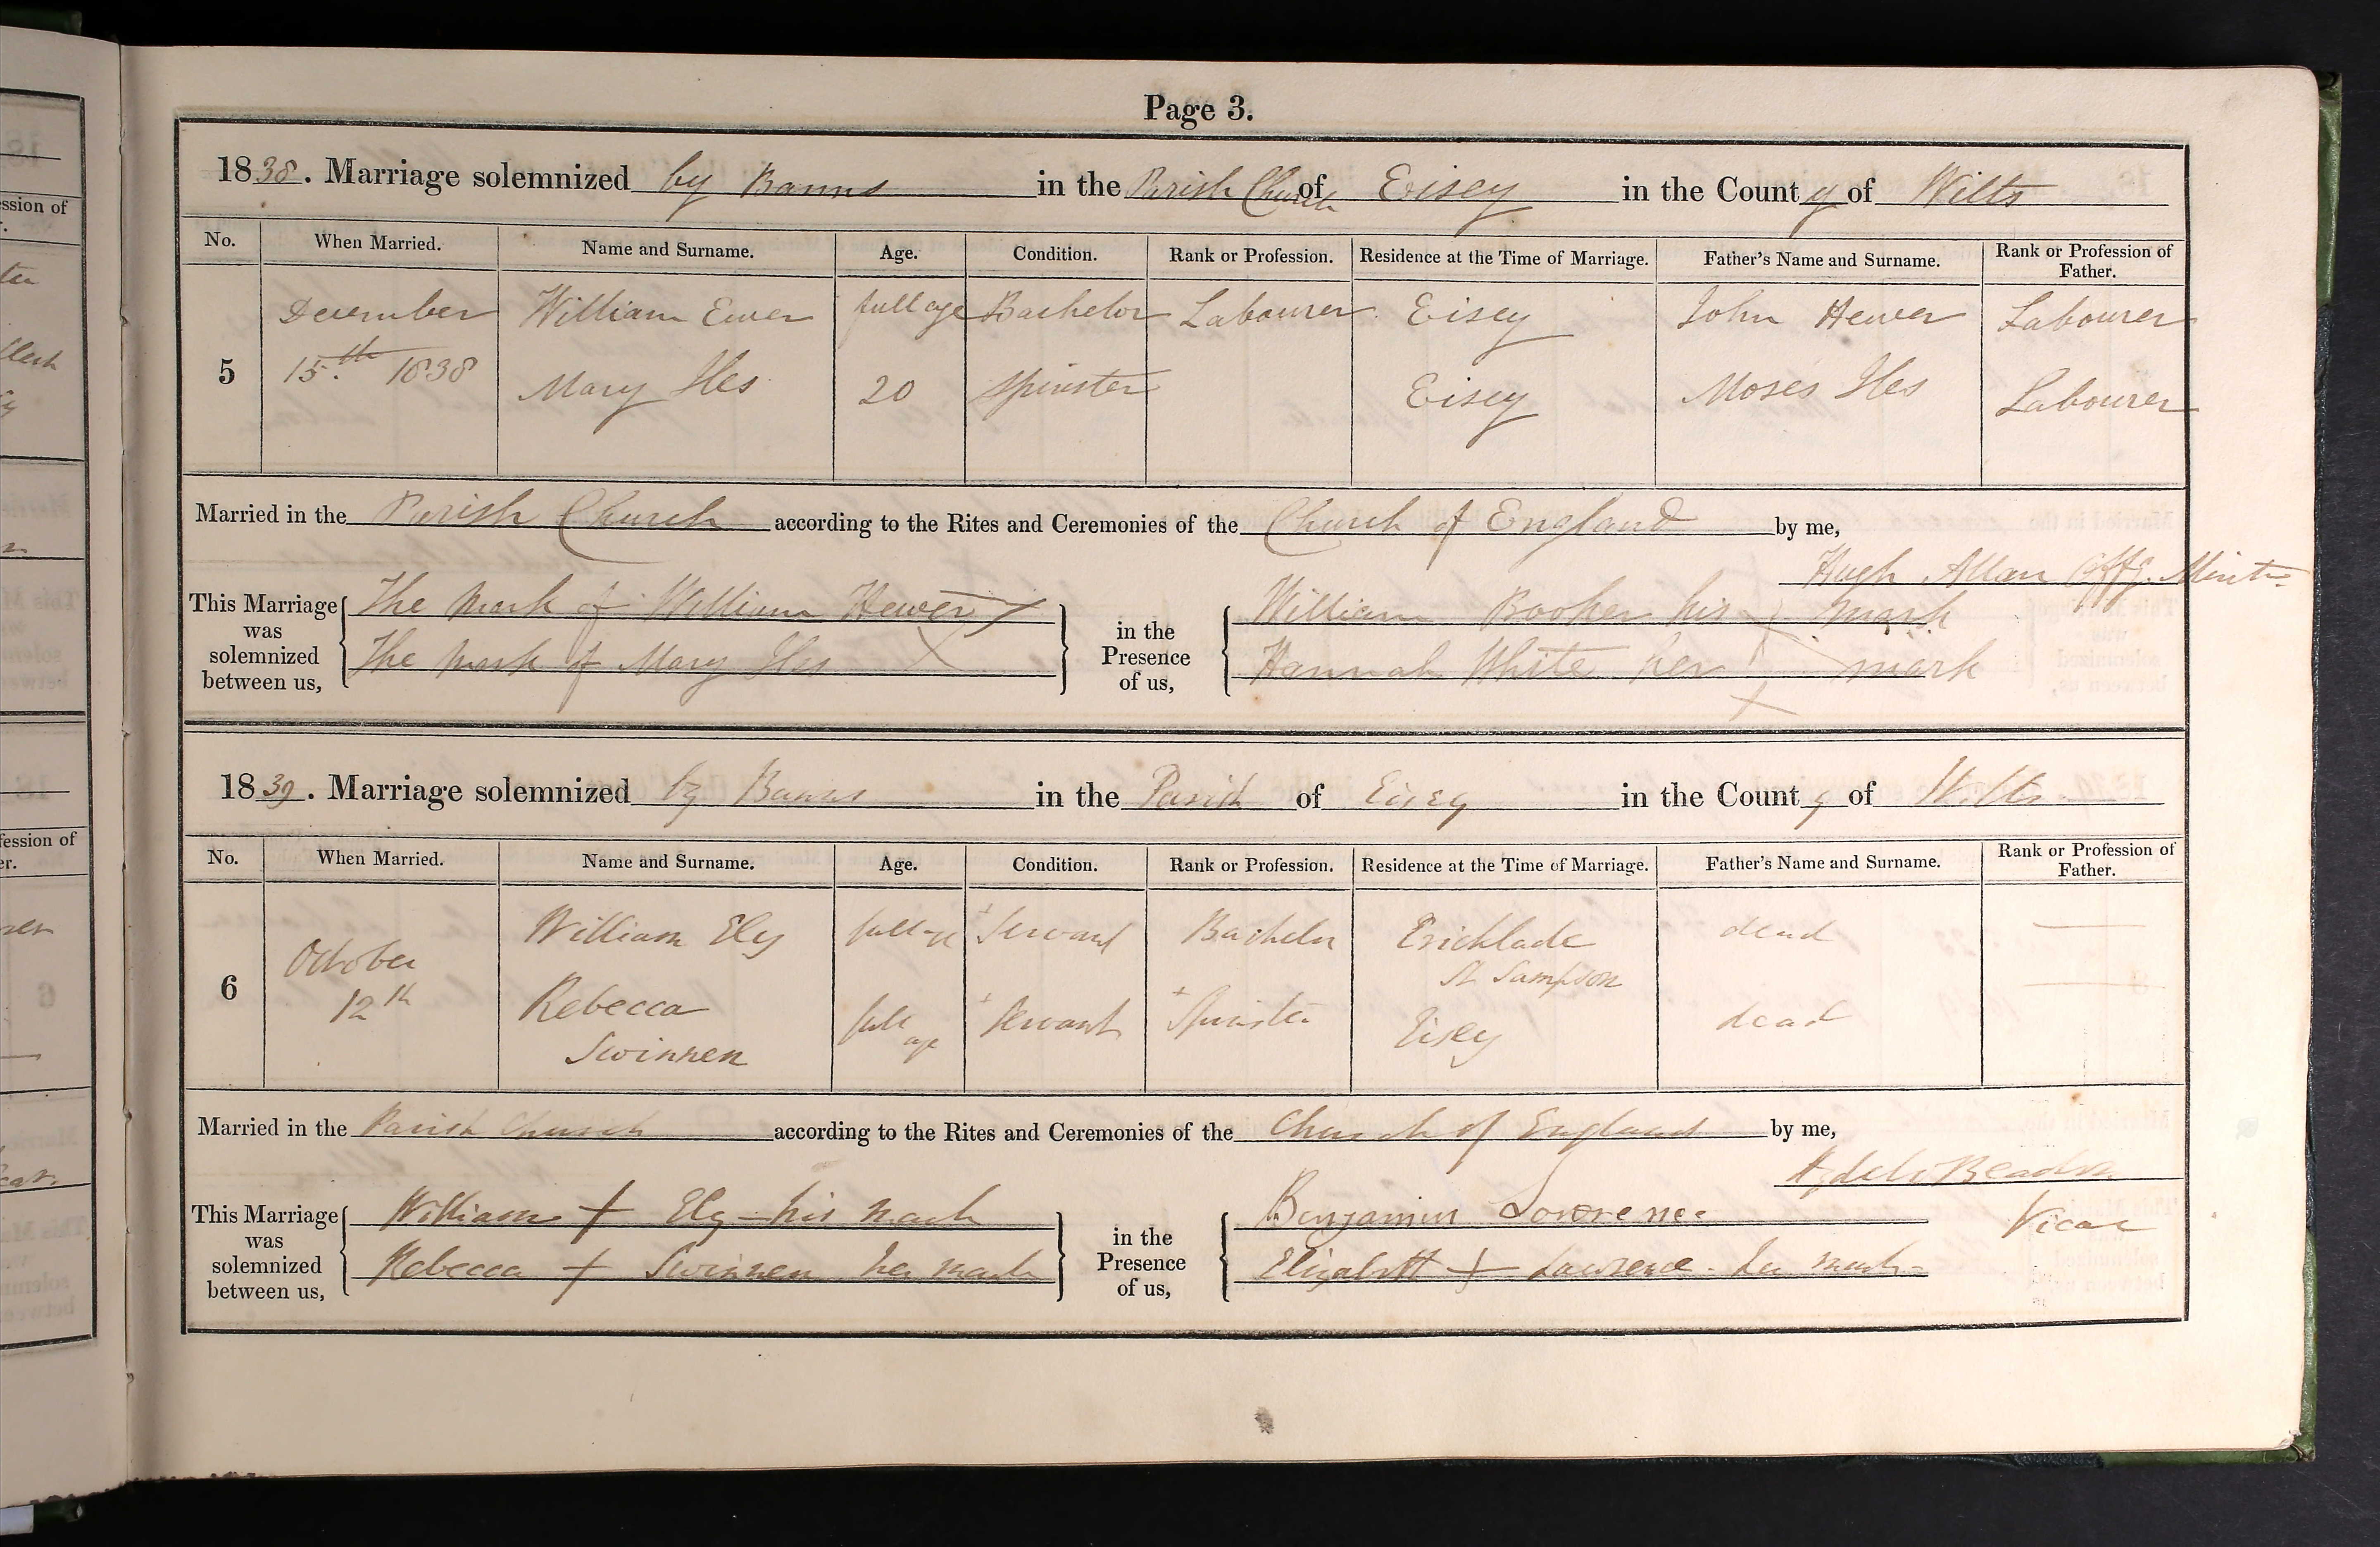 Page 3.
1838. Marriage solemnized by Banns in the Parish Church of Eisey in the County of Wilts
No. When Married. Name and Surname. Age. Condition. Rank or Profession. Residence at the Time of Marriage. Father's Name and Surname. Rank or Profession of Father.
December William Ewer full age Bachelor Labourer Eisey John Hewer Labourer
5 15th 1838 Mary Iles 20 Spinster Eisey Moses Iles Labourer
Married in the Parish Church according to the Rites and Ceremonies of the Church of England by me,
Hugh Allan Offg. Mintr
This Marriage was solemnized between us, The mark of William Hewer X
The mark of Mary Iles X
in the Presence of us, William Booker his X mark
Hannah White her X mark
1839. Marriage solemnized by Banns in the Parish of Eisey in the County of Wilts
No. When Married. Name and Surname. Age. Condition. Rank or Profession. Residence at the Time of Marriage. Father's Name and Surname. Rank or Profession of Father.
William Ely full age + Servant Bachelor Cricklade dead —
St Sampson
6 October 12th Rebecca Swinnen full age + Servant + Spinster Eisey dead —
Married in the Parish Church according to the Rites and Ceremonies of the Church of England by me,
Vicar
This Marriage was solemnized between us, William + Ely - his mark
Rebecca + Swinnen her mark
in the Presence of us, Benjamin Lowrence
Elizabeth + Lawrence - her mark -